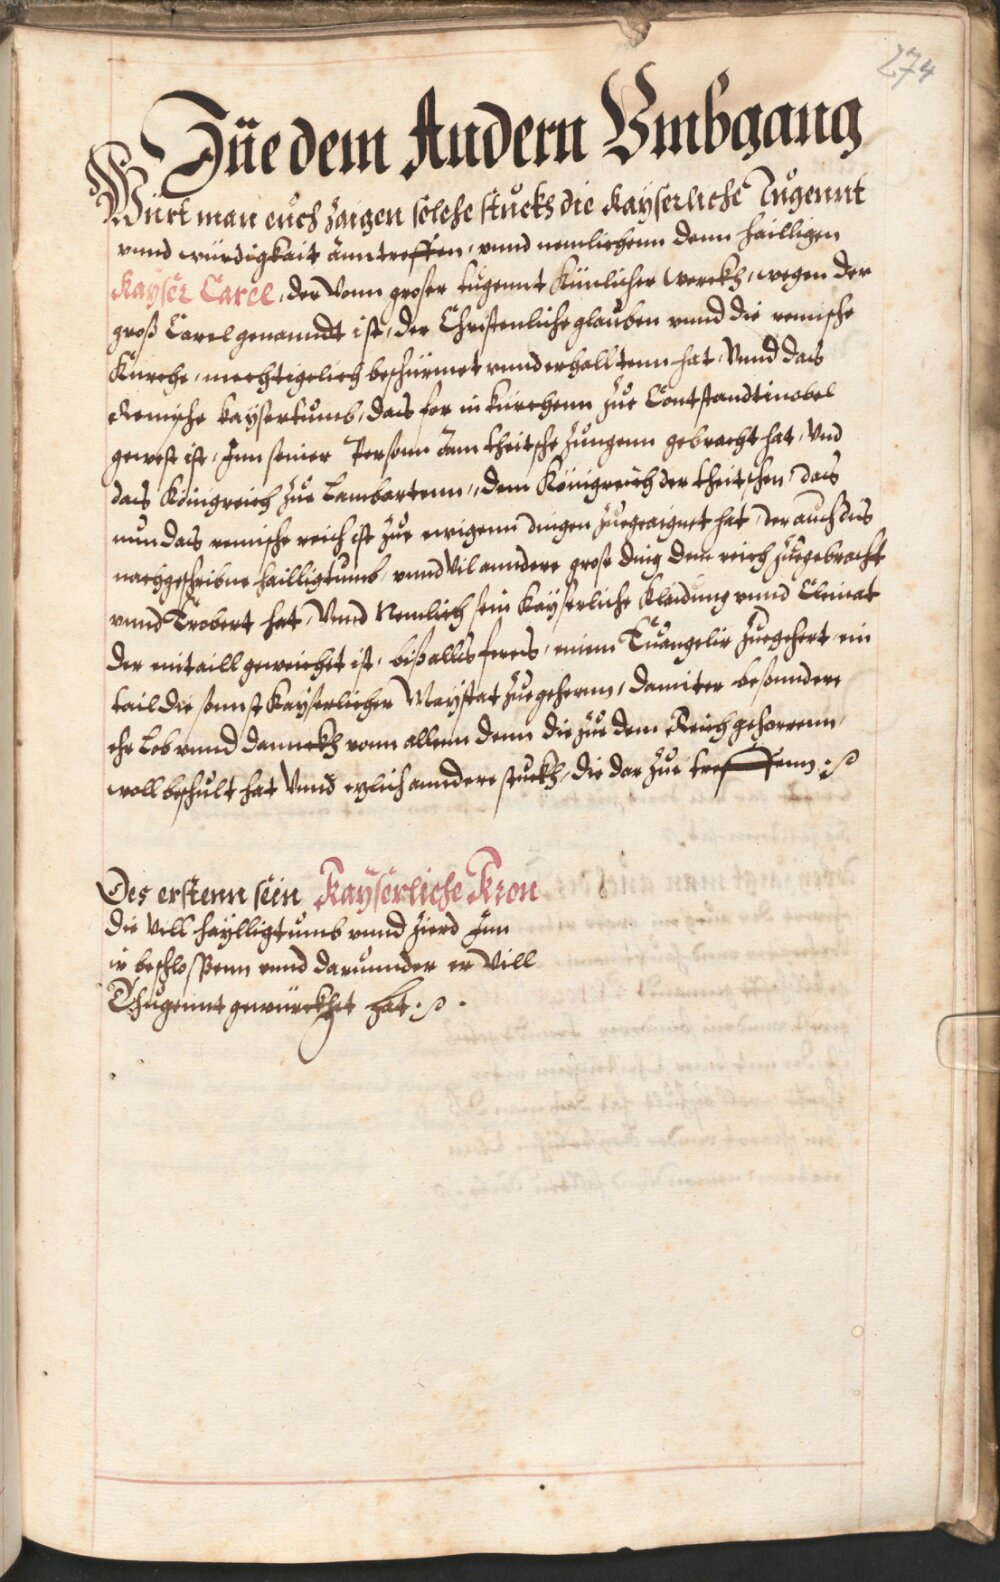 274
Zue dem Andern Vmbgang
Würt man euch zaigen solche stuckh die Kayserliche Tugennt
vnnd würdigkait anntreffen, vnnd nemlichenn denn hailligen
Kayser Carel, der Vonn groser tugennt Künlicher werckh, wegen der
groß Carel genanndt ist, der Christenliche glauben vnnd die remische
Kürche, mechtigelich beschürmet vnnd erhalltenn hat, Vnnd das
Remische kaysertumb, das for in kürchenn zue Conttstandtinobel
gewest ist, Inn seiner Persann Ann theitsche Zungenn gebracht hat, Vnd
das Königreich zue Lambartenn, dem Königreich der theitschen, das
nun das remische reich ist zue ewigenn dingen zuegeaignet hat, der auch das
nachgeschribne hailligtumb, vnnd Vil anndere grose ding dem reich zuegebracht
vnnd Erobert hat, Vnnd Nemlich sein kayserliche kleidung vnnd Cleinat
der ein taill geweichet ist, biß allß ferns, einem Euangelir zuegehert ein
tail die sonnst Kayserlicher Maystat zuegehernn, damit er besonndere
ehr Lob vnnd dannckh vonn allenn denn die zue dem Reich gehorrenn,
woll beschult hat Vnnd ezlich anndere stuckh, die dar zue treffenn :
Des erstenn sein Kayserliche Kron
die Vill haylligtumb vnnd Zierd Inn
ir beschlossenn vnnd darunnder er Vill
Thugennt gewürckhet hat :